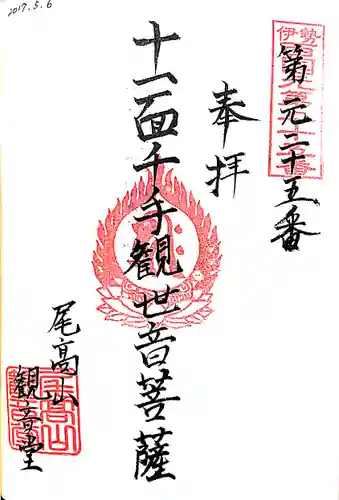 2017.5.6
第二十五番
奉拝
十一面千手観世音菩薩
尾高山
観音堂